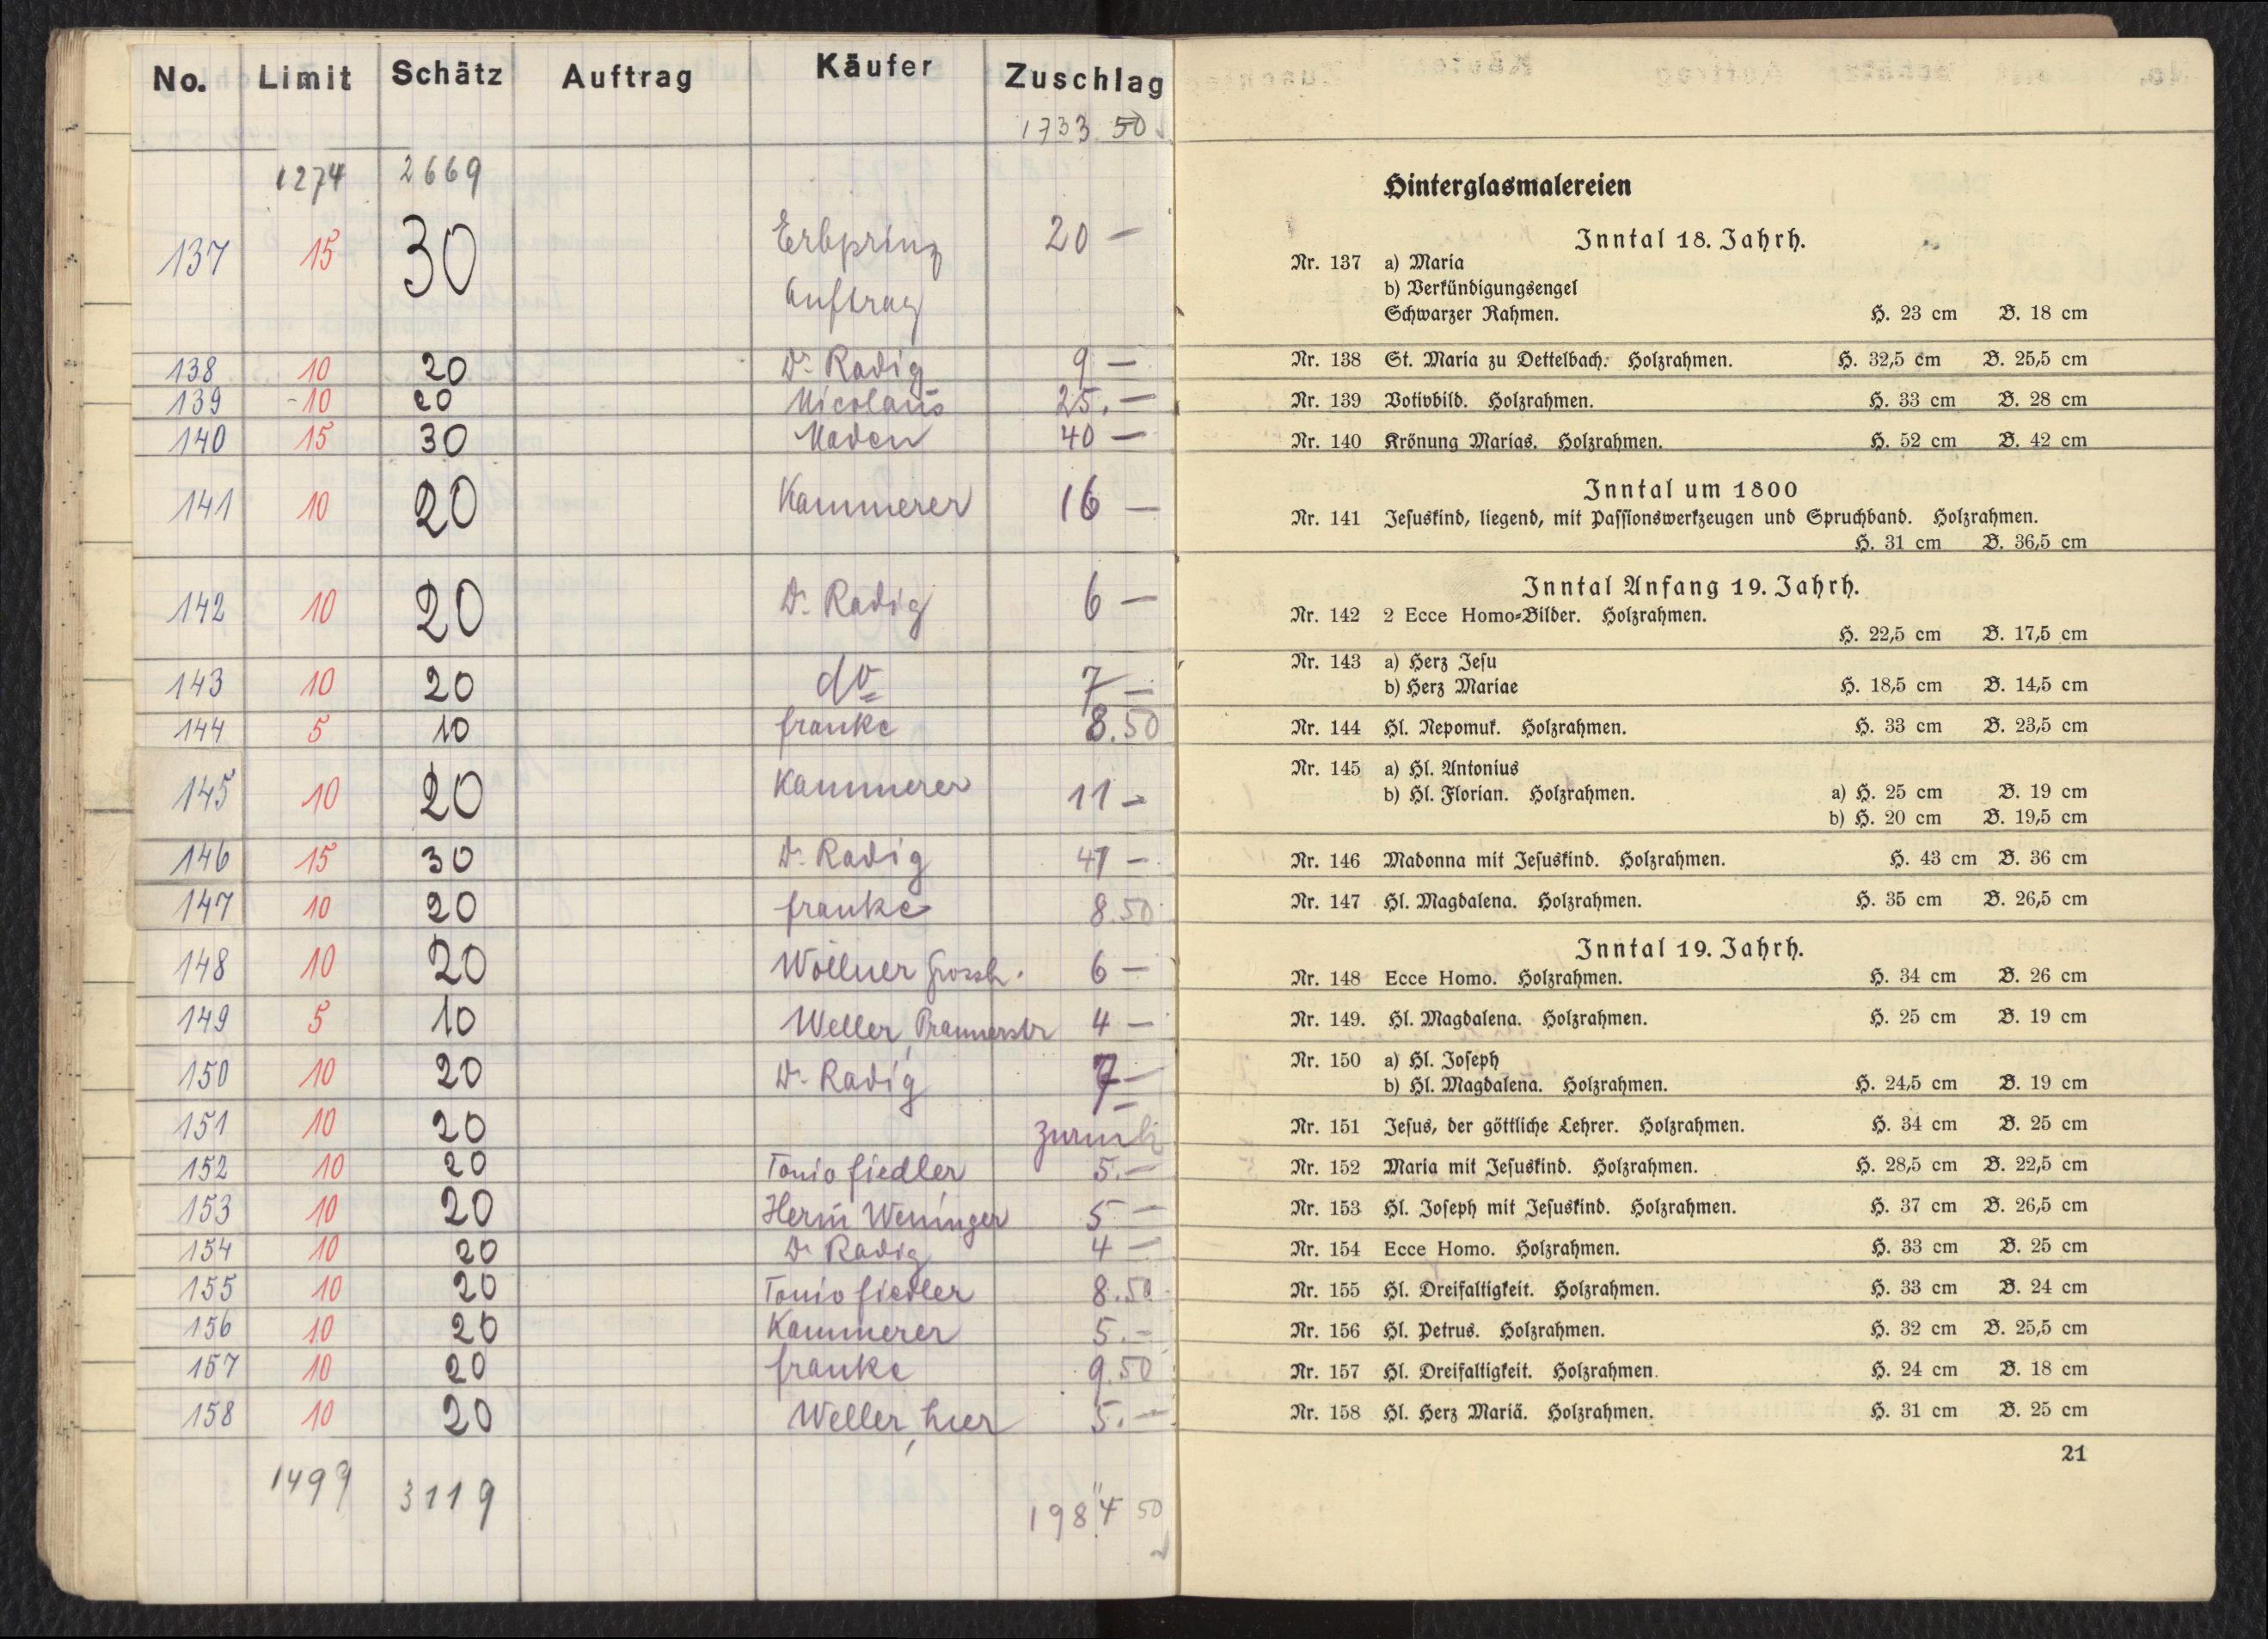 No. Limit Schätz Auftrag Käufer Zuschlag
1733 50
1274 2669
137 15 30 Erbprinz 20 —
Auftrag
138 10 20 Dr. Radig 9 —
139 10 20 Nicolaus 25.—
140 15 30 40 —
141 10 20 Kammerer 16 —
142 10 20 Dr. Radig 6 —
143 10 20 do 7 —
144 5 10 Franke 8.50
145 10 20 Kammerer 11 —
146 15 30 Dr. Radig 41 —
147 10 20 Franke 8.50
148 10 20 Wöllner Grossh. 6 —
149 5 10 Weller, Prannerstr 4 —
150 10 20 Dr. Radig 7 —
151 10 20 zurück
152 10 20 Tonio Fiedler 5.—
153 10 20 Herm Weninger 5 —
154 10 20 Dr Radig 4 —
155 10 20 Tonio Fiedler 8.50
156 10 20 Kammerer 5.—
157 10 20 Franke 9.50
158 10 20 Weller, hier 5.—
1499 3119 1984 50
Hinterglasmalereien
Inntal 18. Jahrh.
Nr. 137 a) Maria
b) Verkündigungsengel
Schwarzer Rahmen. H. 23 cm B. 18 cm
Nr. 138 St. Maria zu Dettelbach. Holzrahmen. H. 32,5 cm B. 25,5 cm
Nr. 139 Votivbild. Holzrahmen. H. 33 cm B. 28 cm
Nr. 140 Krönung Marias. Holzrahmen. H. 52 cm B. 42 cm
Inntal um 1800
Nr. 141 Jesuskind, liegend, mit Passionswerkzeugen und Spruchband. Holzrahmen.
H. 31 cm B. 36,5 cm
Inntal Anfang 19. Jahrh.
Nr. 142 2 Ecce Homo=Bilder. Holzrahmen.
H. 22,5 cm B. 17,5 cm
Nr. 143 a) Herz Jesu
b) Herz Mariae H. 18,5 cm B. 14,5 cm
Nr. 144 Hl. Nepomuk. Holzrahmen. H. 33 cm B. 23,5 cm
Nr. 145 a) Hl. Antonius
b) Hl. Florian. Holzrahmen. a) H. 25 cm B. 19 cm
b) H. 20 cm B. 19,5 cm
Nr. 146 Madonna mit Jesuskind. Holzrahmen. H. 43 cm B. 36 cm
Nr. 147 Hl. Magdalena. Holzrahmen. H. 35 cm B. 26,5 cm
Inntal 19. Jahrh.
Nr. 148 Ecce Homo. Holzrahmen. H. 34 cm B. 26 cm
Nr. 149. Hl. Magdalena. Holzrahmen. H. 25 cm B. 19 cm
Nr. 150 a) Hl. Joseph
b) Hl. Magdalena. Holzrahmen. H. 24,5 cm B. 19 cm
Nr. 151 Jesus, der göttliche Lehrer. Holzrahmen. H. 34 cm B. 25 cm
Nr. 152 Maria mit Jesuskind. Holzrahmen. H. 28,5 cm B. 22,5 cm
Nr. 153 Hl. Joseph mit Jesuskind. Holzrahmen. H. 37 cm B. 26,5 cm
Nr. 154 Ecce Homo. Holzrahmen. H. 33 cm B. 25 cm
Nr. 155 Hl. Dreifaltigkeit. Holzrahmen. H. 33 cm B. 24 cm
Nr. 156 Hl. Petrus. Holzrahmen. H. 32 cm B. 25,5 cm
Nr. 157 Hl. Dreifaltigkeit. Holzrahmen. H. 24 cm B. 18 cm
Nr. 158 Hl. Herz Mariä. Holzrahmen. H. 31 cm B. 25 cm
21